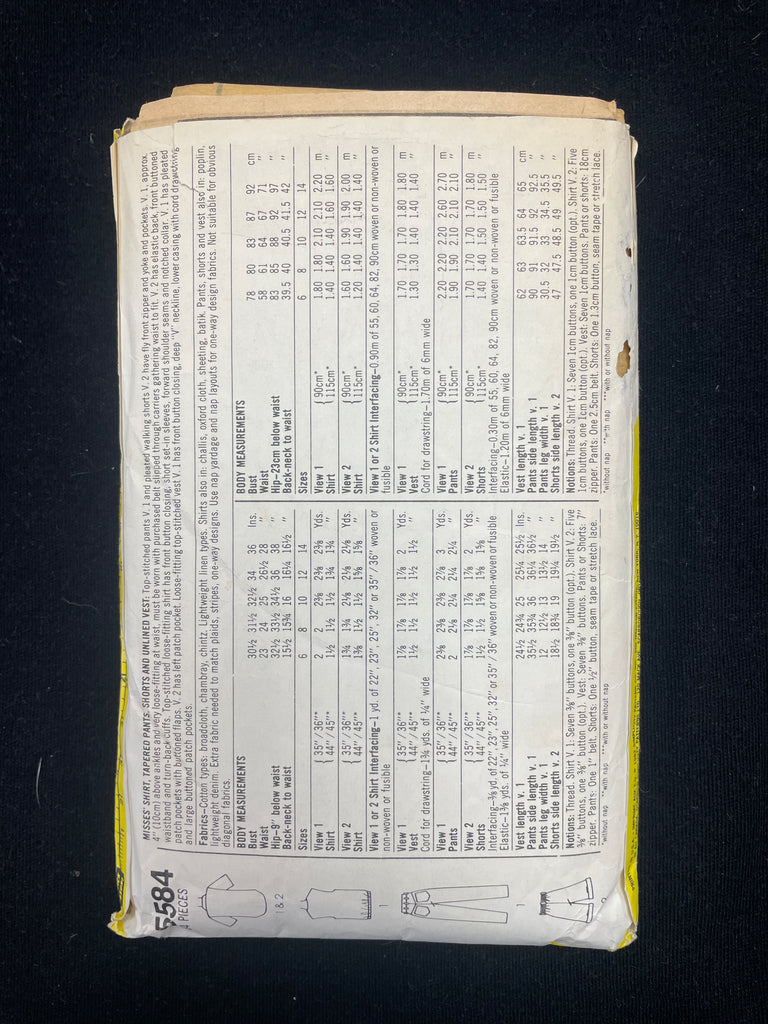 5584
PIECES
MISSES' SHIRT, TAPERED PANTS; SHORTS AND UNLINED VEST: Top-stitched pants V. 1 and pleated walking shorts V. 2 have fly front zipper and yoke and pockets. V. 1, approx.
4" (10cm) above ankles and very loose-fitting at waist, must be worn with purchased belt slipped through carriers gathering waist to fit. V. 2 has elastic back, front buttoned
waistband and turn-back cuffs. Top-stitched loose-fitting shirt has front button closing, short set-in sleeves, forward shoulder seams and notched collar. V. 1 has pleated
patch pockets with buttoned flaps. V. 2 has left patch pocket. Loose-fitting top-stitched vest V. 1 has front button closing, deep "V" neckline, lower casing with cord drawstring
and large buttoned patch pockets.
Fabrics—Cotton types: broadcloth, chambray, chintz. Lightweight linen types. Shirts also in: challis, oxford cloth, sheeting, batik. Pants, shorts and vest also in: poplin,
lightweight denim. Extra fabric needed to match plaids, stripes, one-way designs. Use nap yardage and nap layouts for one-way design fabrics. Not suitable for obvious
diagonal fabrics.
BODY MEASUREMENTS
Bust 30½ 31½ 32½ 34 36 Ins.
Waist 23 24 25 26½ 28 "
Hip—9" below waist 32½ 33½ 34½ 36 38 "
Back-neck to waist 15½ 15¾ 16 16¼ 16½ "
Sizes 6 8 10 12 14
View 1 {35"/36"** 2 2 2⅜ 2⅜ 2⅜ Yds.
Shirt {44"/45"* 1½ 1½ 1½ 1¾ 1¾ "
View 2 {35"/36"** 1¾ 1¾ 2⅛ 2⅛ 2⅛ Yds.
Shirt {44"/45"* 1⅜ 1½ 1½ 1⅝ 1⅝ "
View 1 or 2 Shirt Interfacing—1 yd. of 22", 23", 25", 32" or 35"/36" woven or
non-woven or fusible
View 1 {35"/36"** 1⅞ 1⅞ 1⅞ 1⅞ 2 Yds.
Vest {44"/45"* 1½ 1½ 1½ 1½ 1½ "
Cord for drawstring—1¾ yds. of ¼" wide
View 1 {35"/36"** 2⅜ 2⅜ 2⅜ 2⅞ 3 Yds.
Pants {44"/45"* 2 2⅛ 2¼ 2¼ 2¼ "
View 2 {35"/36"** 1⅞ 1⅞ 1⅞ 1⅞ 2 Yds.
Shorts {44"/45"* 1½ 1½ 1⅝ 1⅝ 1⅝ "
Interfacing—⅜ yd. of 22", 23", 25", 32" or 35"/36" woven or non-woven or fusible
Elastic—1⅜ yds. of ¼" wide
Vest length v. 1 24½ 24¾ 25 25¼ 25½ Ins.
Pants side length v. 1 35½ 35¾ 36 36¼ 36½ "
Pants leg width v. 1 12 12½ 13 13½ 14 "
Shorts side length v. 2 18½ 18¾ 19 19¼ 19½ "
Notions: Thread. Shirt V. 1: Seven ⅜" buttons, one ⅜" button (opt.). Shirt V. 2: Five
⅜" buttons, one ⅜" button (opt.). Vest: Seven ⅜" buttons. Pants or Shorts: 7"
zipper. Pants: One 1" belt. Shorts: One ½" button, seam tape or stretch lace.
*without nap **with nap ***with or without nap
BODY MEASUREMENTS
Bust 78 80 83 87 92 cm
Waist 58 61 64 67 71 "
Hip—23cm below waist 83 85 88 92 97 "
Back-neck to waist 39.5 40 40.5 41.5 42 "
Sizes 6 8 10 12 14
View 1 {90cm* 1.80 1.80 2.10 2.10 2.20 m
Shirt {115cm* 1.40 1.40 1.40 1.60 1.60 "
View 2 {90cm* 1.60 1.60 1.90 1.90 2.00 m
Shirt {115cm* 1.20 1.40 1.40 1.40 1.40 "
View 1 or 2 Shirt Interfacing—0.90m of 55, 60, 64, 82, 90cm woven or non-woven or
fusible
View 1 {90cm* 1.70 1.70 1.70 1.80 1.80 m
Vest {115cm* 1.30 1.30 1.40 1.40 1.40 "
Cord for drawstring—1.70m of 6mm wide
View 1 {90cm* 2.20 2.20 2.20 2.60 2.70 m
Pants {115cm* 1.90 1.90 2.10 2.10 2.10 "
View 2 {90cm* 1.70 1.70 1.70 1.70 1.80 m
Shorts {115cm* 1.40 1.40 1.50 1.50 1.50 "
Interfacing—0.30m of 55, 60, 64, 82, 90cm woven or non-woven or fusible
Elastic—1.20m of 6mm wide
Vest length v. 1 62 63 63.5 64 65 cm
Pants side length v. 1 90 91 91.5 92 92.5 "
Pants leg width v. 1 30.5 32 33 34.5 35.5 "
Shorts side length v. 2 47 47.5 48.5 49 49.5 "
Notions: Thread. Shirt V. 1: Seven 1cm buttons, one 1cm button (opt.). Shirt V. 2: Five
1cm buttons, one 1cm button (opt.). Vest: Seven 1cm buttons. Pants or shorts: 18cm
zipper. Pants: One 2.5cm belt. Shorts: One 1.3cm button, seam tape or stretch lace.
*without nap **with nap ***with or without nap
1 & 2
1
1